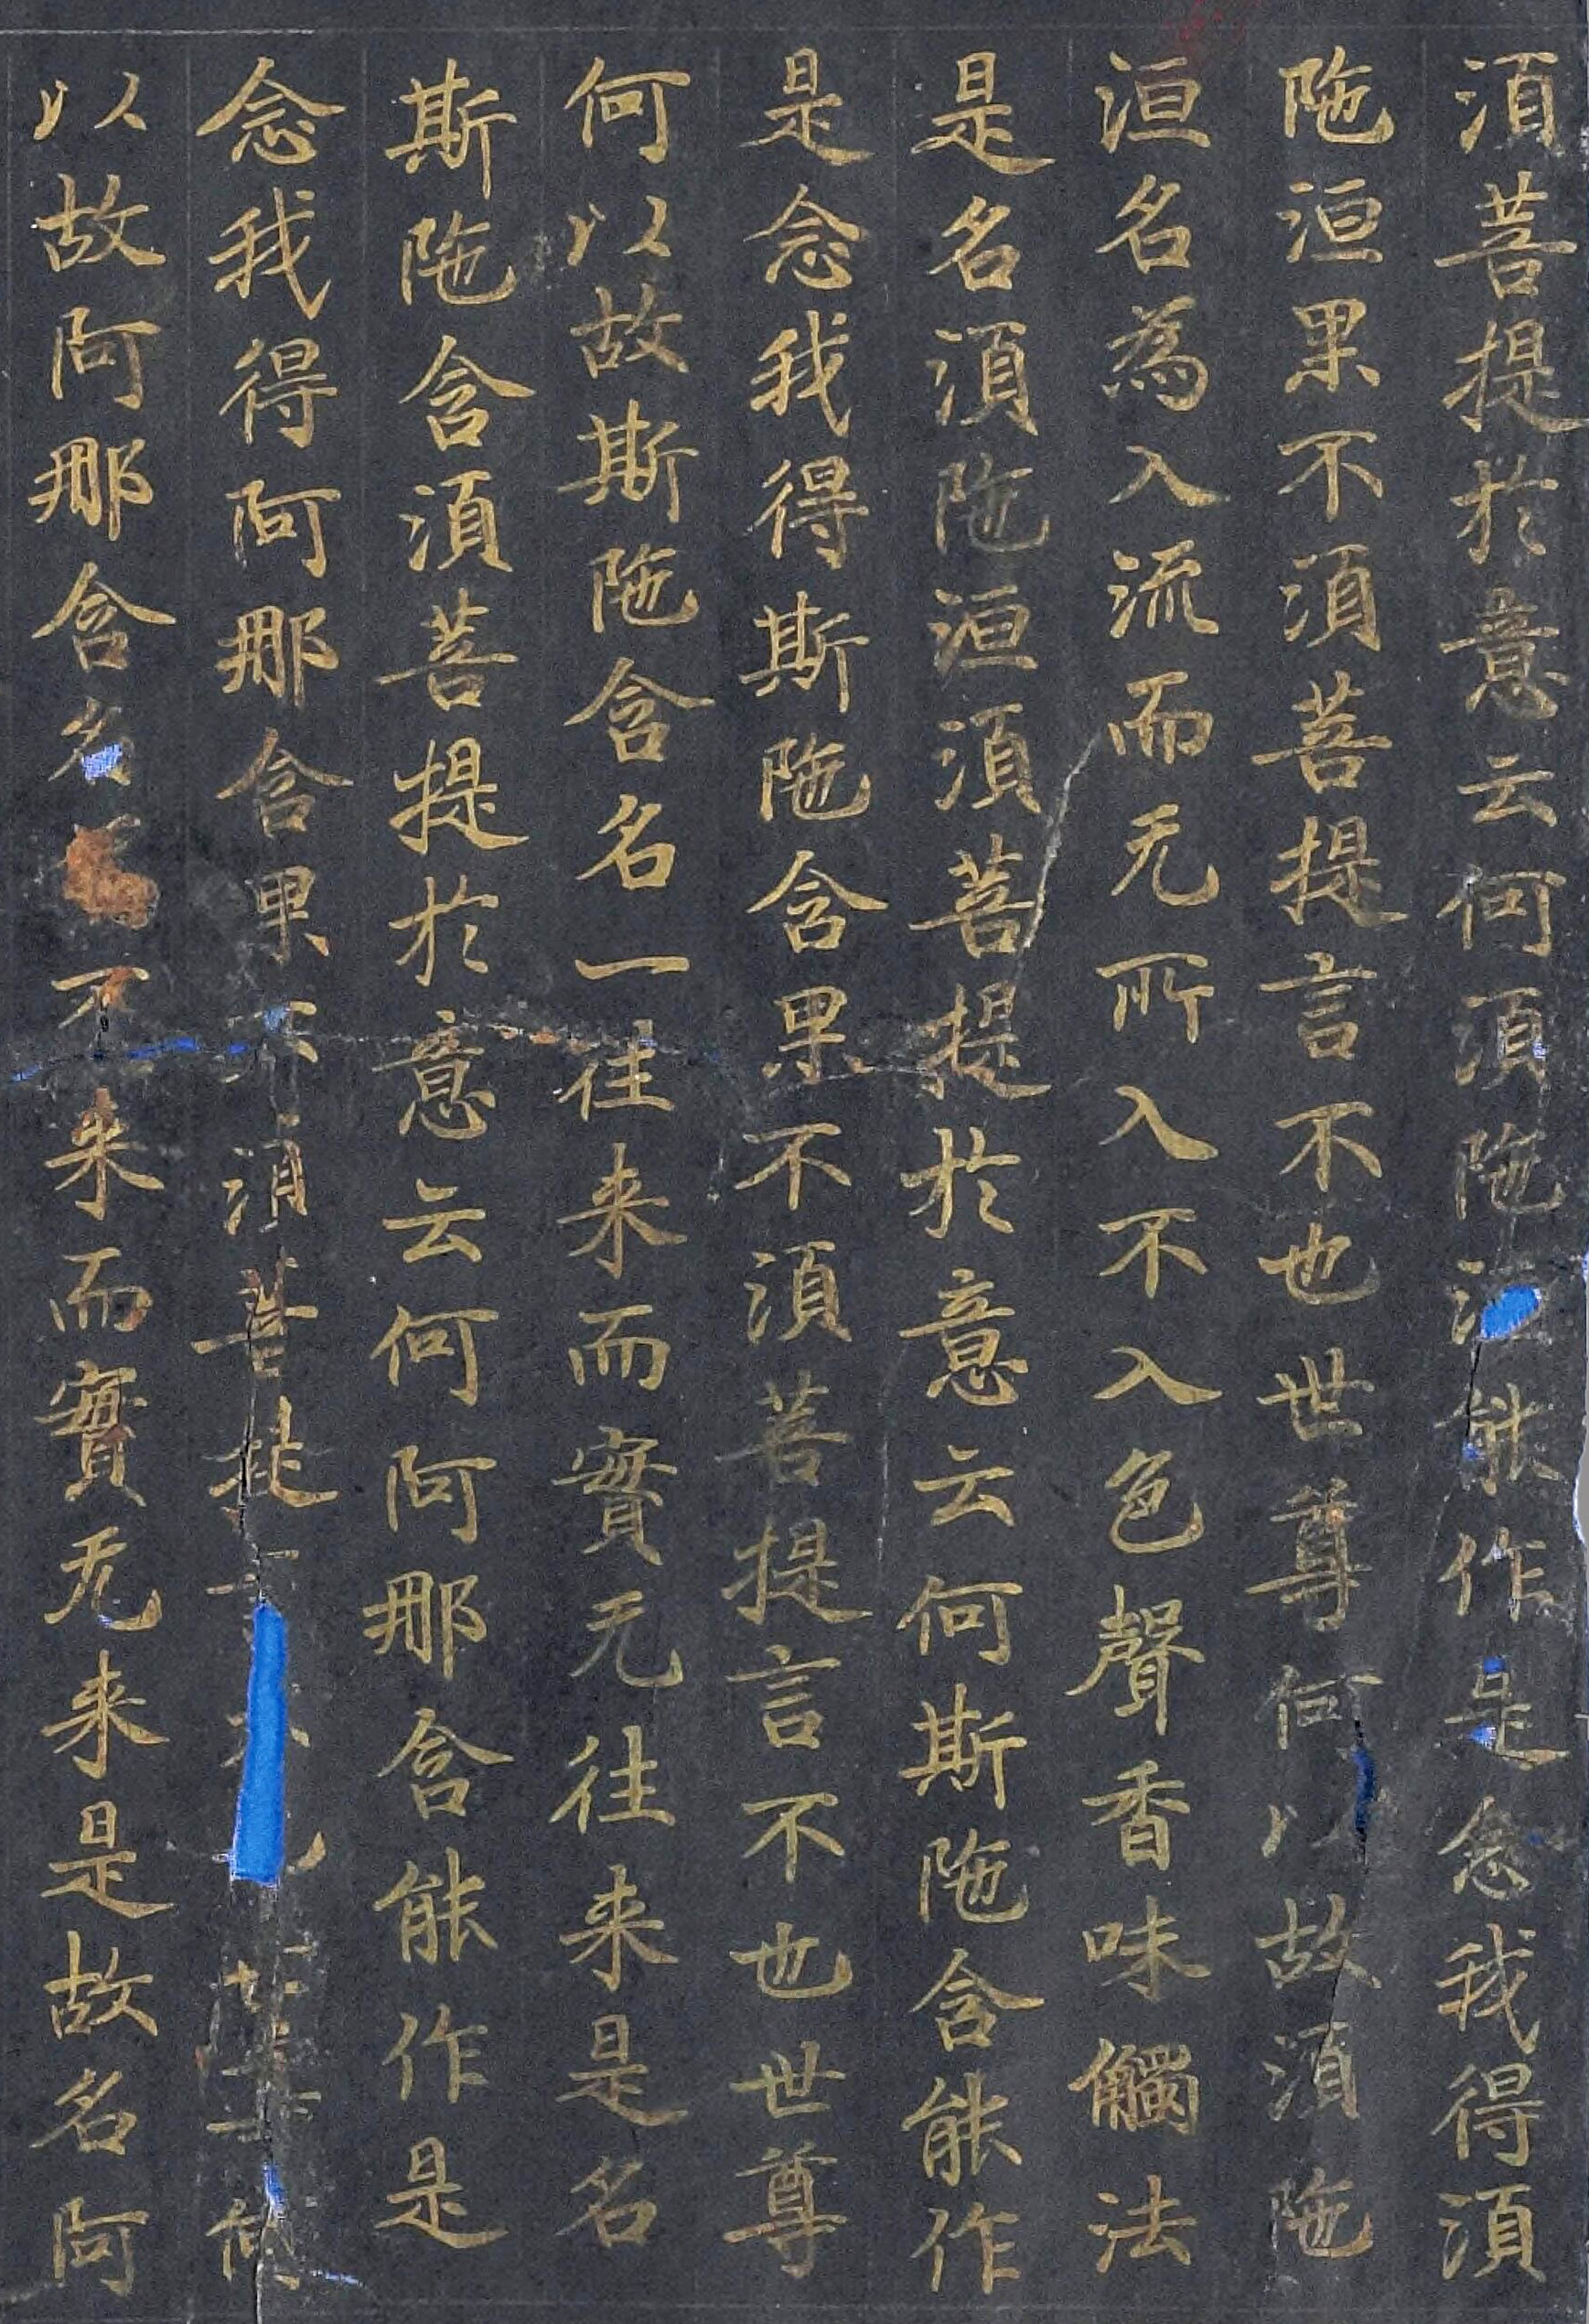 須菩提於意云何須陁洹能作是念我得須
陁洹果不須菩提言不也世尊何以故須陁
洹名為入流而无所入不入色聲香味觸法
是名須陁洹須菩提於意云何斯陁含能作
是念我得斯陁含果不須菩提言不也世尊
何以故斯陁含名一往来而實无往来是名
斯陁含須菩提於意云何阿那含能作是
念我得阿那含果不須菩提
以故阿那含名 不来而實无来是故名阿